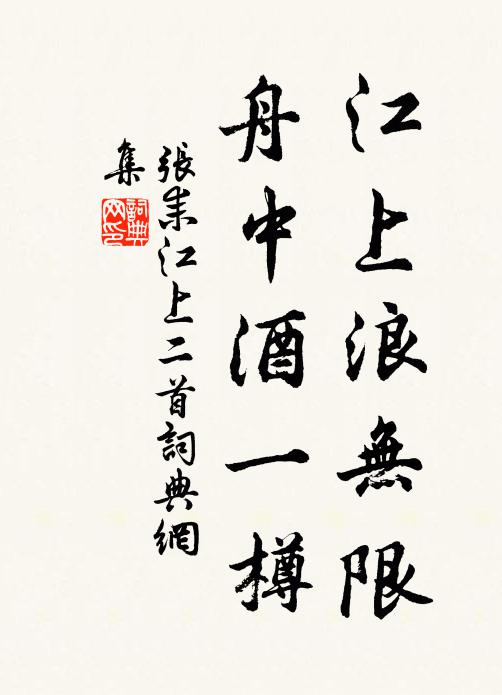 江上浪無限
舟中酒一樽
張耒江上二首詞典網
集
詞典
网印